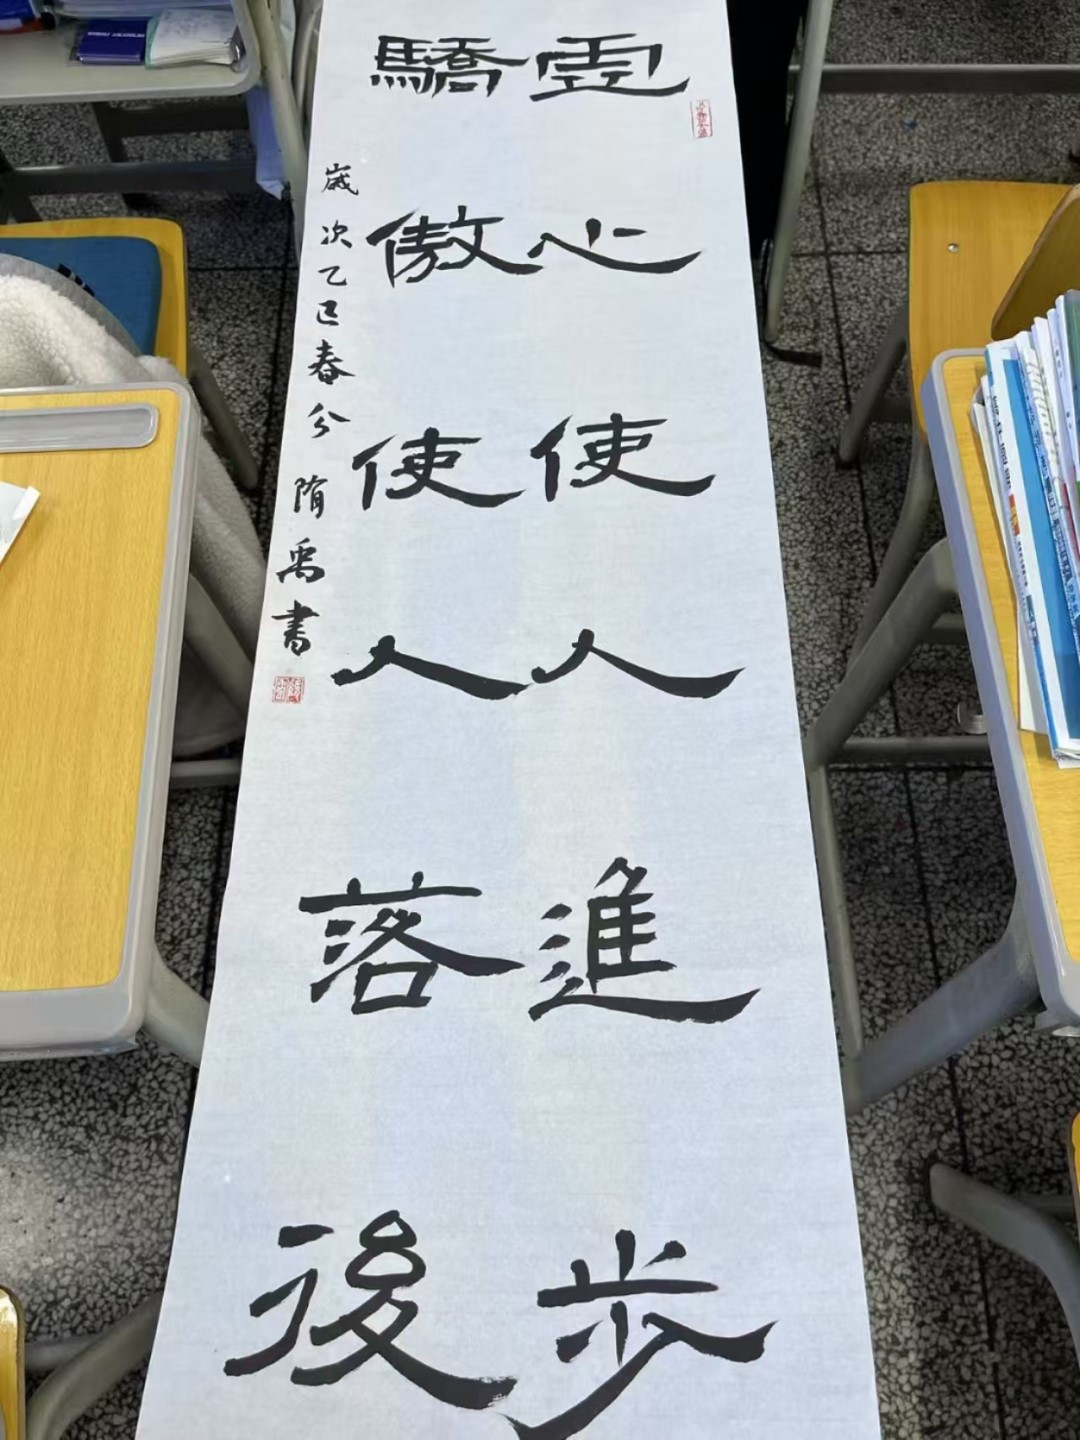 虛心使人進步
驕傲使人落後
歲次乙巳春分 隋禹書